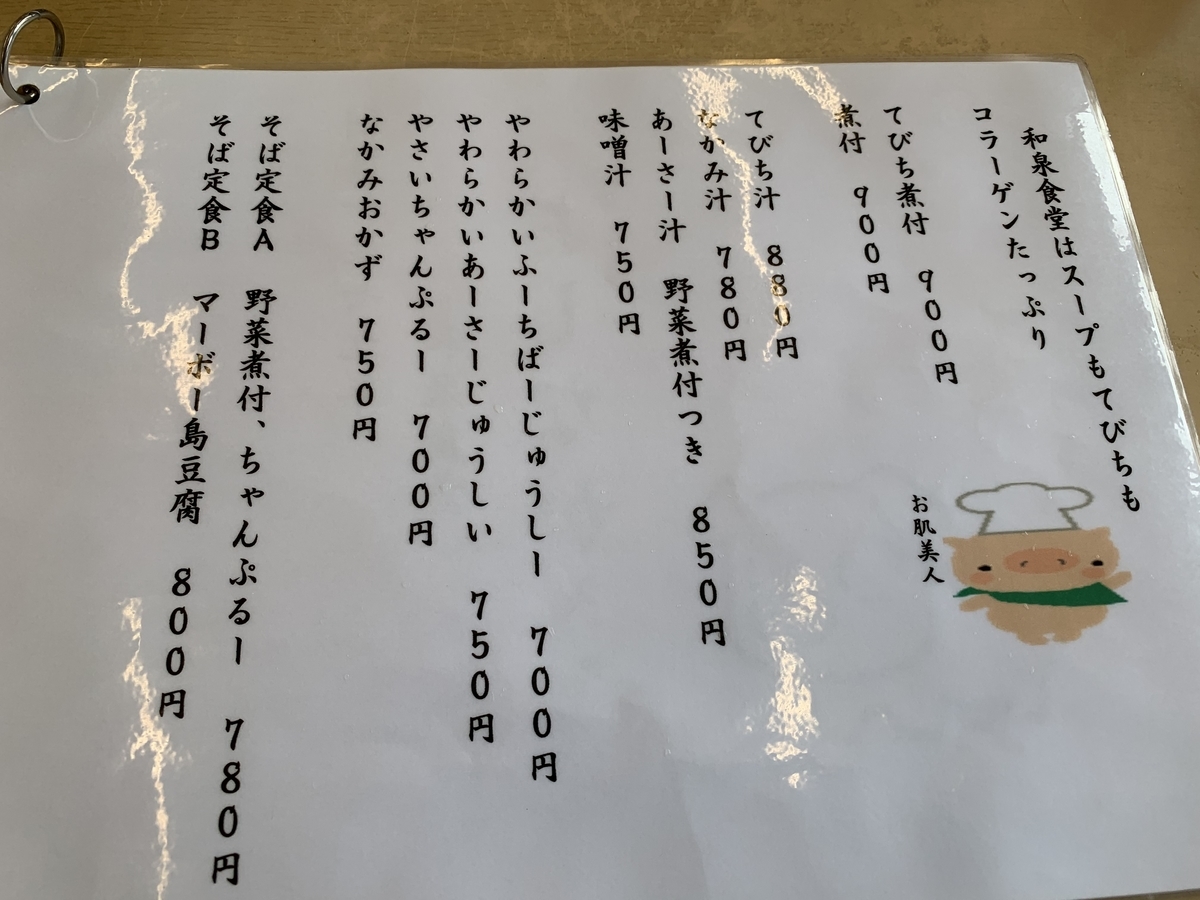 和泉食堂はスープもてびちも
コラーゲンたっぷり
お肌美人
てびち煮付 900円
煮付 900円
てびち汁 880円
なかみ汁 780円
あーさー汁 野菜煮付つき 850円
味噌汁 750円
やわらかいふーちばーじゅうしー 700円
やわらかいあーさーじゅうしい 750円
やさいちゃんぷるー 700円
なかみおかず 750円
そば定食A 野菜煮付、ちゃんぷるー 780円
そば定食B マーボー島豆腐 800円